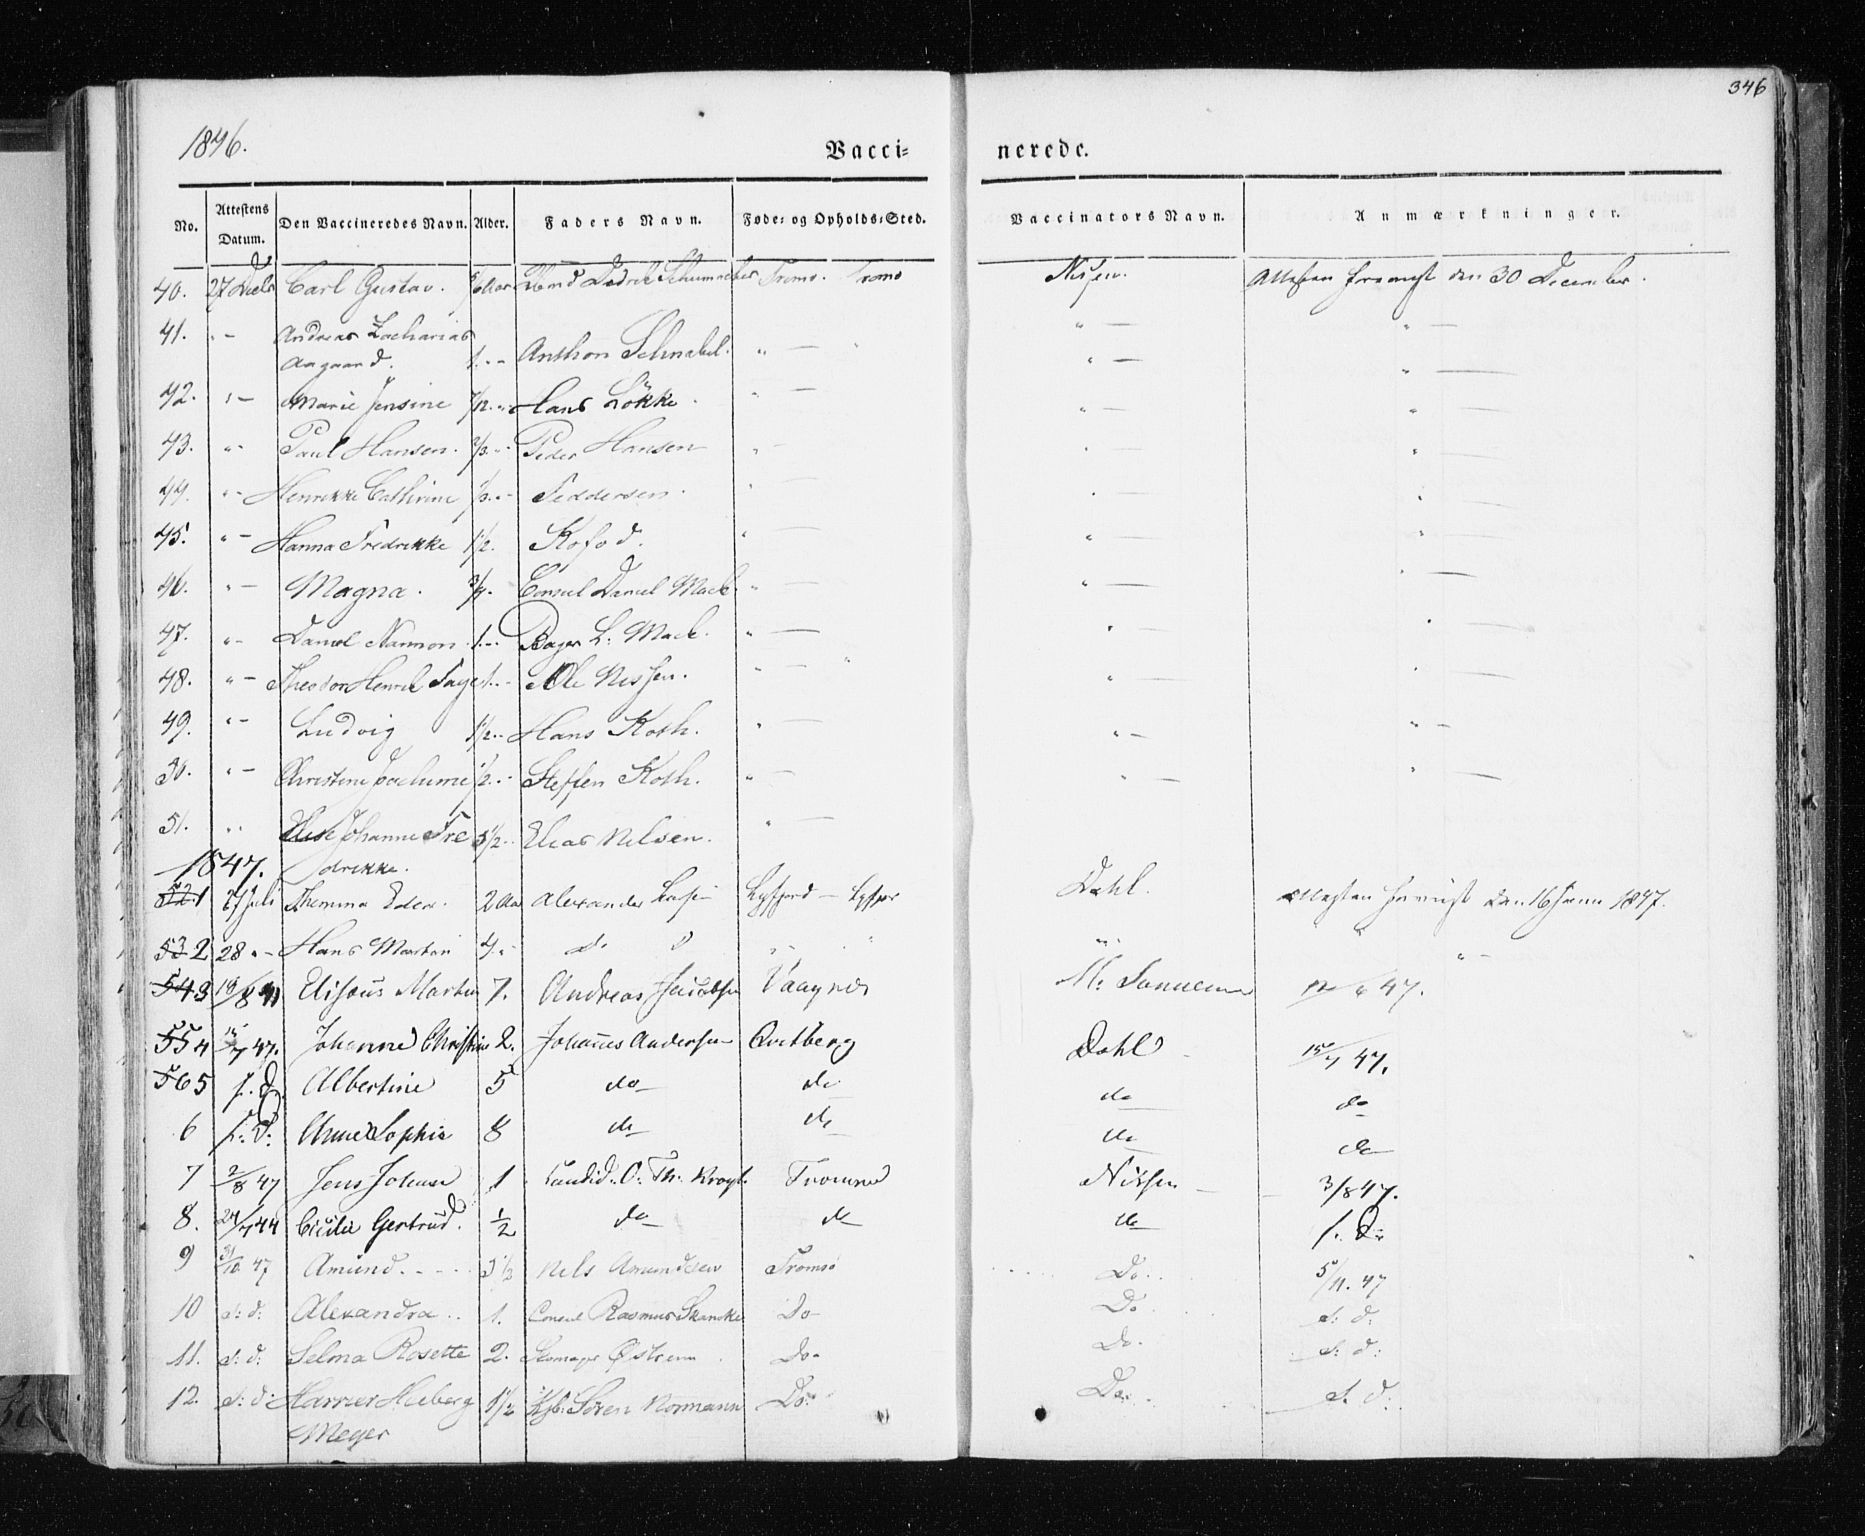 346
1846.
Vacci= nerede.
No. Attestens Datum. Den Vaccineredes Navn. Alder. Faders Navn. Føde= og Opholds=Sted. Vaccinators Navn. Anmærkninger.
40. 27 Decbr Carl Gustav. Schumacher Tromø. Tromø Nissen. Attesten den 30 December.
41. " – Andreas Zacharias
Aagaard. 1. " – Anthon Schnabel. " – " " – " –
42. " – Marie Jensine 7/12. " Hans Lökke. " – " – " –
43. " – Paul Hansen. 2/3. " – Peder Hansen " – " – " –
44. " – Henrikke Cathrine 1/3. " – Feddersen. " – " " –
45. " – Hanna Fredrikke 1½. Kofod. " – " – " –
46. " – Magna. 3/4. Consul Daniel Mack. " – " – " –
47. " – Daniel Nannon. 1. " – Bager L: Mack. " – " – " –
48. " – Theodor Henrik Faye 1. " – Ole Nissen. " – " " – " –
49. " – Ludvig 1½. " – Hans Koth. " – " – " –
50. " – Christine Joachime ½. " – Steffen Koth. " – " – " –
51. " " Johanne Fre 5½. " Elias Nilsen. " –
1847. drikke.
52. 1 27 Juli Themina 2 Aar Alexander Dahl. Attesten den 16 1847.
53 2 28 " – Hans Martin 4. " do d " " " " " –
54 3 18/8 41 Elisæus Martin 7. Andreas Jacobsen Vaagnes M: 47.
55 4 15/7 47. Johanne Christine 2. Johannes Andersen Qvitberg Dahl 15/7 47.
56 5 s. d. Albertine 5 do do do do
6 s: d: Anne Sophie 8 do do do do
7 2/8 47 Jens Johan 1 Candid. O: Th: Krogh Tromsø Nissen 3/8 47.
8. 24/7 44 Cicilie Gertrud. ½ do do do s. d:
9 31/10 47 Amund. - - - 3½ Nels Amundsen Tromsø Do. 5/11. 47
10 s: d: Alexandra .. 1. Consul Rasmus Skancke Do Do s: d:
11. s: d: Selma Rosette 2. Skomager Östrem Do Do. s: d:
12. s: d: 1½ Sören Normann Do: Do. s: d:
Meyer